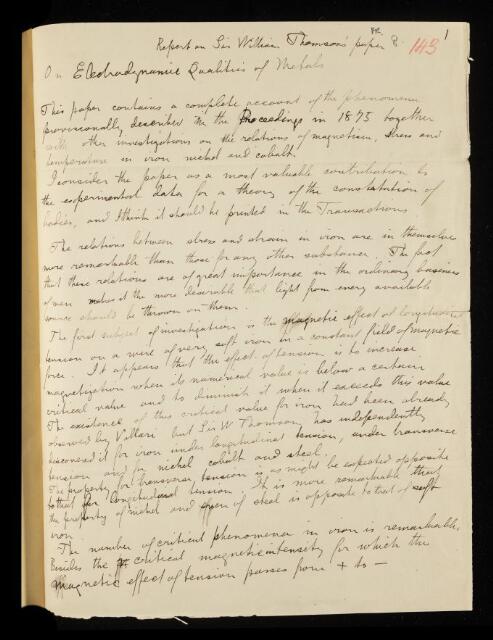 1
Report on Sir William Thomson's paper
143
On Electrodynamic Qualities of Metals
This paper contains a complete account of the phenomena
provisionally described in the Proceedings in 1875 together
with other investigations on the relations of magnetism, stress and
temperature in iron nickel and cobalt.
I consider the paper as a most valuable contribution to
the experimental data for a theory of the constitution of
bodies, and I think it should be printed in the Transactions
The relations between stress and strain in iron are in themselves
more remarkable than those for any other substance. The fact
that these relations are of great importance in the ordinary business
of men makes it the more desirable that light from every available
source should be thrown on them.
The first subject of investigation is the magnetic effect of longitudinal
tension on a wire of very soft iron in a constant field of magnetic
force. It appears that the effect of tension is to increase
magnetization when its numerical value is below a certain
critical value and to diminish it when it exceeds this value
The existence of this critical value for iron had been already
observed by Villari but Sir W Thomson has independently
discovered it for iron under longitudinal tension, under transverse
tension and for nickel cobalt and steel.
The property for transverse tension is as might be expected opposite
to that for longitudinal tension. It is more remarkable that
the property of nickel and of steel is opposite to that of soft
iron.
The number of critical phenomena in iron is remarkable.
Besides the critical magnetic intensity for which the
magnetic effect of tension passes from + to -